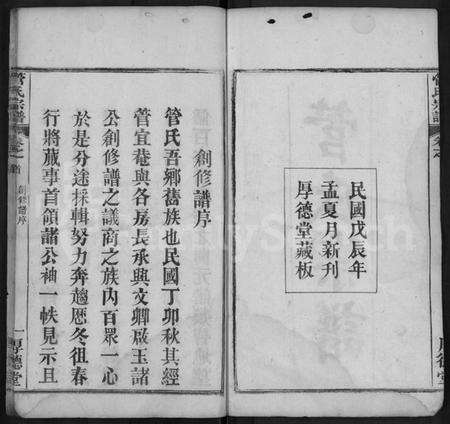 管氏宗譜
卷之
民國戊辰年
孟夏月新刊
厚德堂藏板
創修譜序
管氏吾鄉舊族也民國丁卯秋其經
管宜菴與各房長承興文卿啟玉諸
公創修譜之議商之族內百眾一心
於是分途採輯努力奔趨歷冬徂春
行將蕆事首領諸公袖一帙見示且
管氏宗譜
卷之首
創修譜序
一
厚德堂